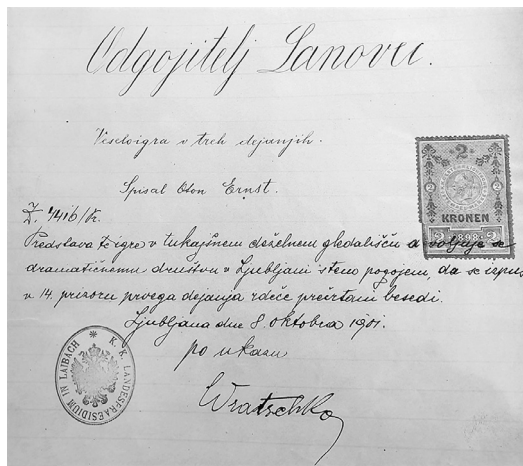 Odgojitelj Lanovec.
Veseloigra v treh dejanjih.
Spisal Oton Ernst.
2
2 2
KRONEN
2 1898 2
Z. 4416/Pr.
Predstava te igre v tukajšnem deželnem gledališču dovoljuje se
dramatičnemu društvu v Ljubljani s tem pogojem, da se izpus
v 14. prizoru prvega dejanja rdeče prečrtani besedi.
Ljubljana dne 8. oktobra 1901.
po ukazu
Wratschko
K. K. LANDESPRAESIDIUM IN LAIBACH